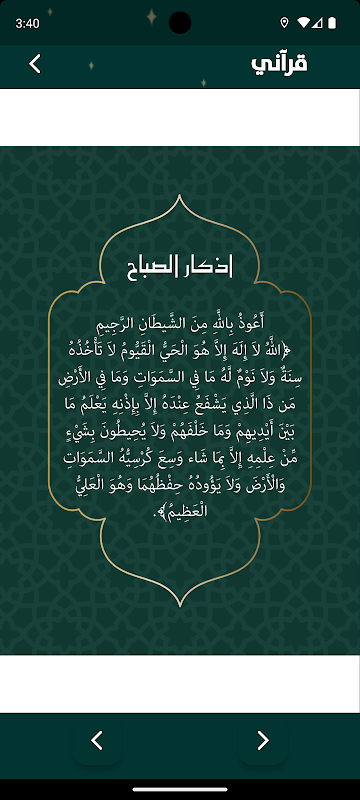 3:40
قرآني
اذكار الصباح
أَعُوذُ بِاللَّهِ مِنَ الشَّيطَانِ الرَّجِيمِ
﴿اللَّهُ لاَ إِلَهَ إِلاَّ هُوَ الْحَيُّ الْقَيُّومُ لاَ تَأْخُذُهُ
سِنَةٌ وَلاَ نَوْمٌ لَّهُ مَا فِي السَّمَوَاتِ وَمَا فِي الأَرْضِ
مَن ذَا الَّذِي يَشْفَعُ عِنْدَهُ إِلاَّ بِإِذْنِهِ يَعْلَمُ مَا
بَيْنَ أَيْدِيهِمْ وَمَا خَلْفَهُمْ وَلاَ يُحِيطُونَ بِشَيْءٍ
مِّنْ عِلْمِهِ إِلاَّ بِمَا شَاء وَسِعَ كُرْسِيُّهُ السَّمَوَاتِ
وَالْأَرْضَ وَلاَ يَؤُودُهُ حِفْظُهُمَا وَهُوَ الْعَلِيُّ
الْعَظِيمُ﴾.